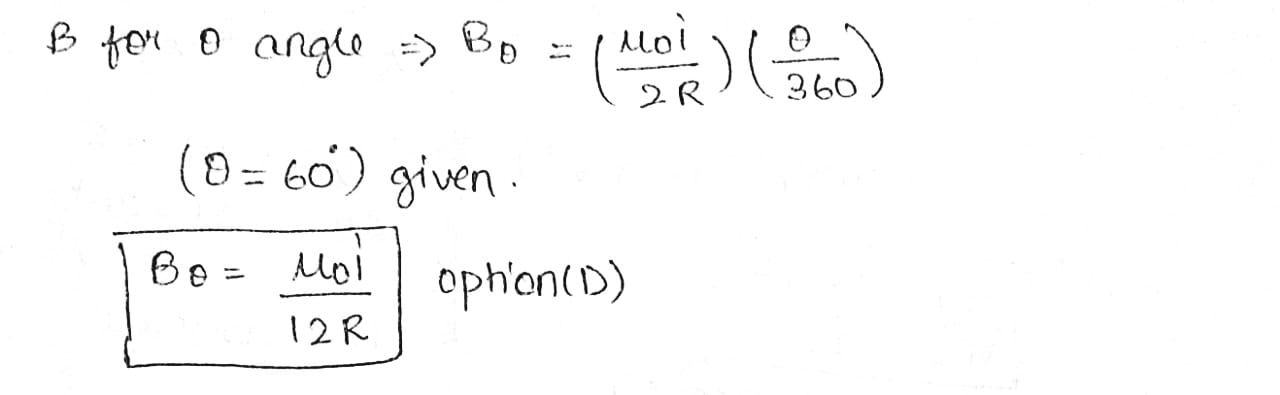 B for θ angle ⇒ Bθ = (μ₀i / 2R) (θ / 360)
(θ = 60°) given.
Bθ = μ₀i / 12R option(D)